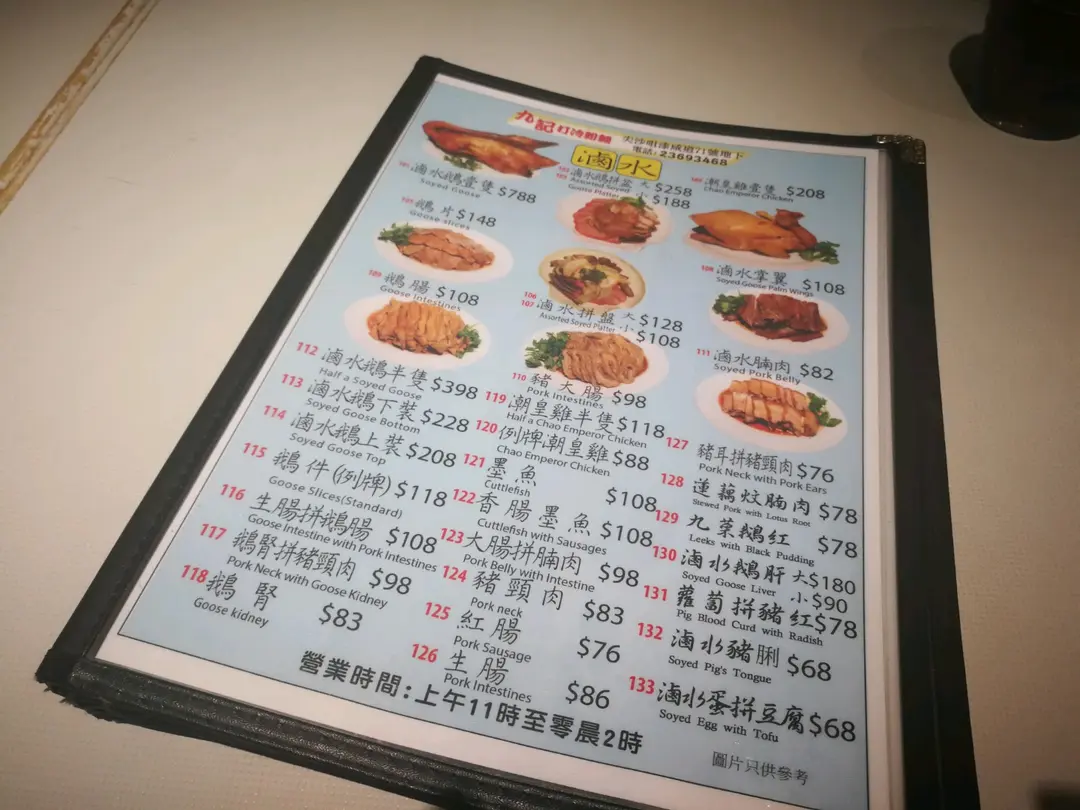 九記打冷粉麵 尖沙咀漆咸道71號地下
電話: 23693468
滷水
滷水鵝壹隻 $788
Soyed Goose
滷水鵝拼盆 大 $258
Assorted Soyed 小 $188
Goose Platter
潮皇雞壹隻 $208
Chao Emperor Chicken
鵝片 $148
Goose slices
108 滷水掌翼 $108
Soyed Goose Palm Wings
109 鵝腸 $108
Goose Intestines
106 滷水拼盤 大 $128
107 Assorted Soyed Platter 小 $108
110 豬大腸 $98
Pork Intestines
111 滷水腩肉 $82
Soyed Pork Belly
112 滷水鵝半隻 $398
Half a Soyed Goose
113 滷水鵝下裝 $228
Soyed Goose Bottom
114 滷水鵝上裝 $208
Soyed Goose Top
115 鵝件(例牌) $118
Goose Slices(Standard)
116 生腸拼鵝腸 $108
Goose Intestine with Pork Intestines
117 鵝腎拼豬頸肉 $98
Pork Neck with Goose Kidney
118 鵝腎 $83
Goose kidney
119 潮皇雞半隻 $118
Half a Chao Emperor Chicken
120 例牌潮皇雞 $88
Chao Emperor Chicken
121 墨魚 $108
Cuttlefish
122 香腸墨魚 $108
Cuttlefish with Sausages
123 大腸拼腩肉 $98
Pork Belly with Intestine
124 豬頸肉 $83
Pork neck
125 紅腸 $76
Pork Sausage
126 生腸 $86
Pork Intestines
127 豬耳拼豬頸肉 $76
Pork Neck with Pork Ears
128 蓮藕炆腩肉 $78
Stewed Pork with Lotus Root
129 九菜鵝紅 $78
Leeks with Black Pudding
130 滷水鵝肝 大 $180
Soyed Goose Liver 小 $90
131 蘿蔔拼豬紅 $78
Pig Blood Curd with Radish
132 滷水豬脷 $68
Soyed Pig's Tongue
133 滷水蛋拼豆腐 $68
Soyed Egg with Tofu
營業時間:上午11時至零晨2時
圖片只供參考